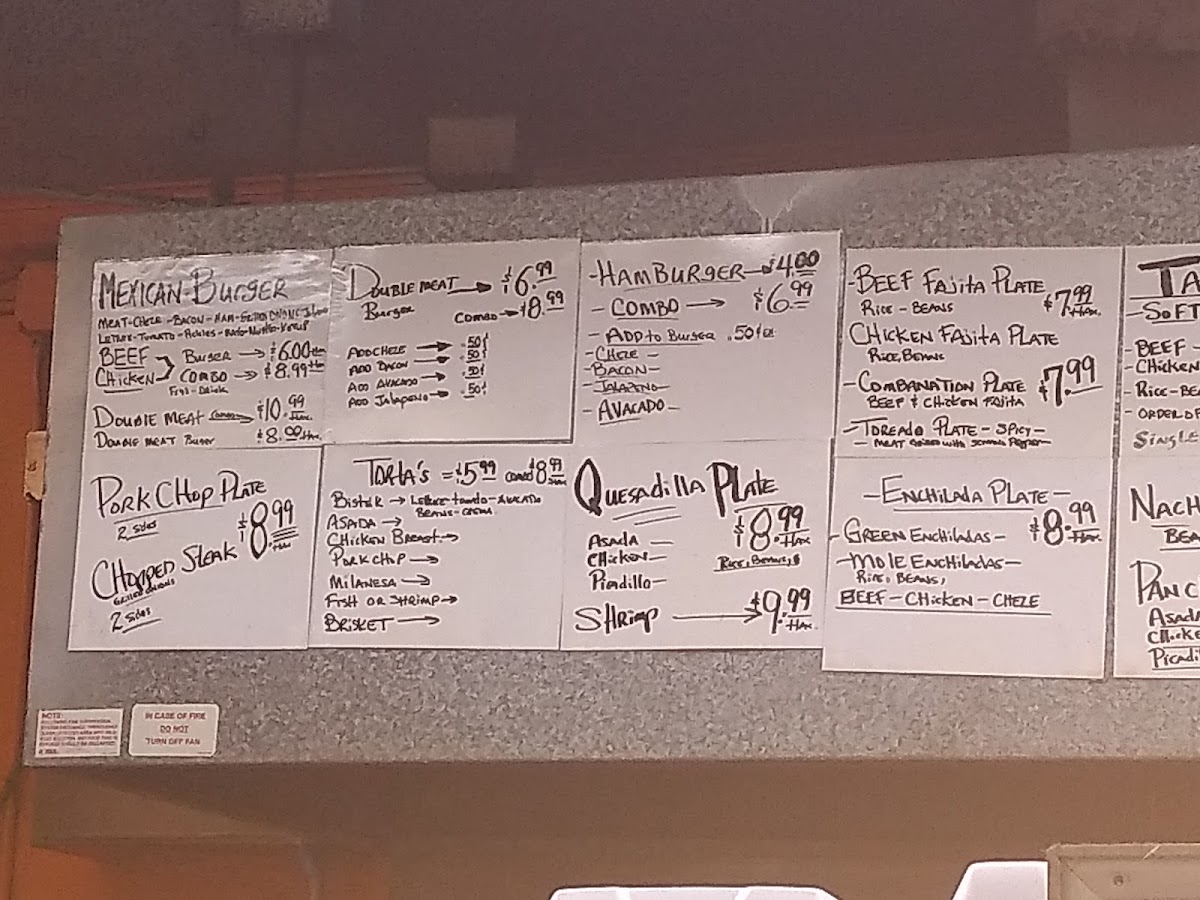 MEXICAN-BURGER
MEAT-CHEZE-BACON-HAM-GRILLED ONIONS
LETTUCE-TOMATO-PICKLES-MAYO-MUSTARD-KETUP
BEEF BURGER → $6.00+tax
CHICKEN COMBO → $8.99+tax
FRIES-DRINK
DOUBLE MEAT COMBO → $10.99+tax
DOUBLE MEAT BURGER $8.00+tax
DOUBLE MEAT → $6.99
BURGER
COMBO → $8.99
ADD CHEZE → .50¢
ADD BACON → .50¢
ADD AVACADO → .50¢
ADD JALAPENO → .50¢
-HAMBURGER → $4.00
- COMBO → $6.99
- ADD to BURGER .50¢ ea.
- CHEZE -
- BACON -
- JALAPENO -
- AVACADO -
-BEEF FAJITA PLATE
RICE - BEANS $7.99+tax
CHICKEN FAJITA PLATE
RICE, BEANS
-COMBANATION PLATE $7.99
BEEF & CHICKEN FAJITA
-TOREADO PLATE - SPICY-
- MEAT GRILLED WITH SERRANO PEPPERS
TA
-SOFT
-BEEF -
-CHICKEN
-RICE-BEA
- ORDER OF
SINGLE
PORK CHOP PLATE
2 SIDES
$8.99+tax
CHOPPED STEAK
GRILLED ONIONS
2 SIDES
TORTA'S = $5.99 COMBO $8.99
BISTEK → LETTUCE-TOMATO-AVACADO
BEANS-CREMA
ASADA →
CHICKEN BREAST →
PORK CHOP →
MILANESA →
FISH OR SHRIMP →
BRISKET →
QUESADILLA PLATE
$8.99+tax
ASADA —
CHICKEN —
RICE, BEANS,
PICADILLO —
SHRIMP → $9.99+tax
-ENCHILADA PLATE-
$8.99+tax
- GREEN ENCHILADAS-
-MOLE ENCHILADAS-
RICE, BEANS,
BEEF-CHICKEN-CHEZE
NACH
BEA
PANC
ASADA
CHICKE
PICADIL
NOTE:
IN CASE OF FIRE
DO NOT
TURN OFF FAN